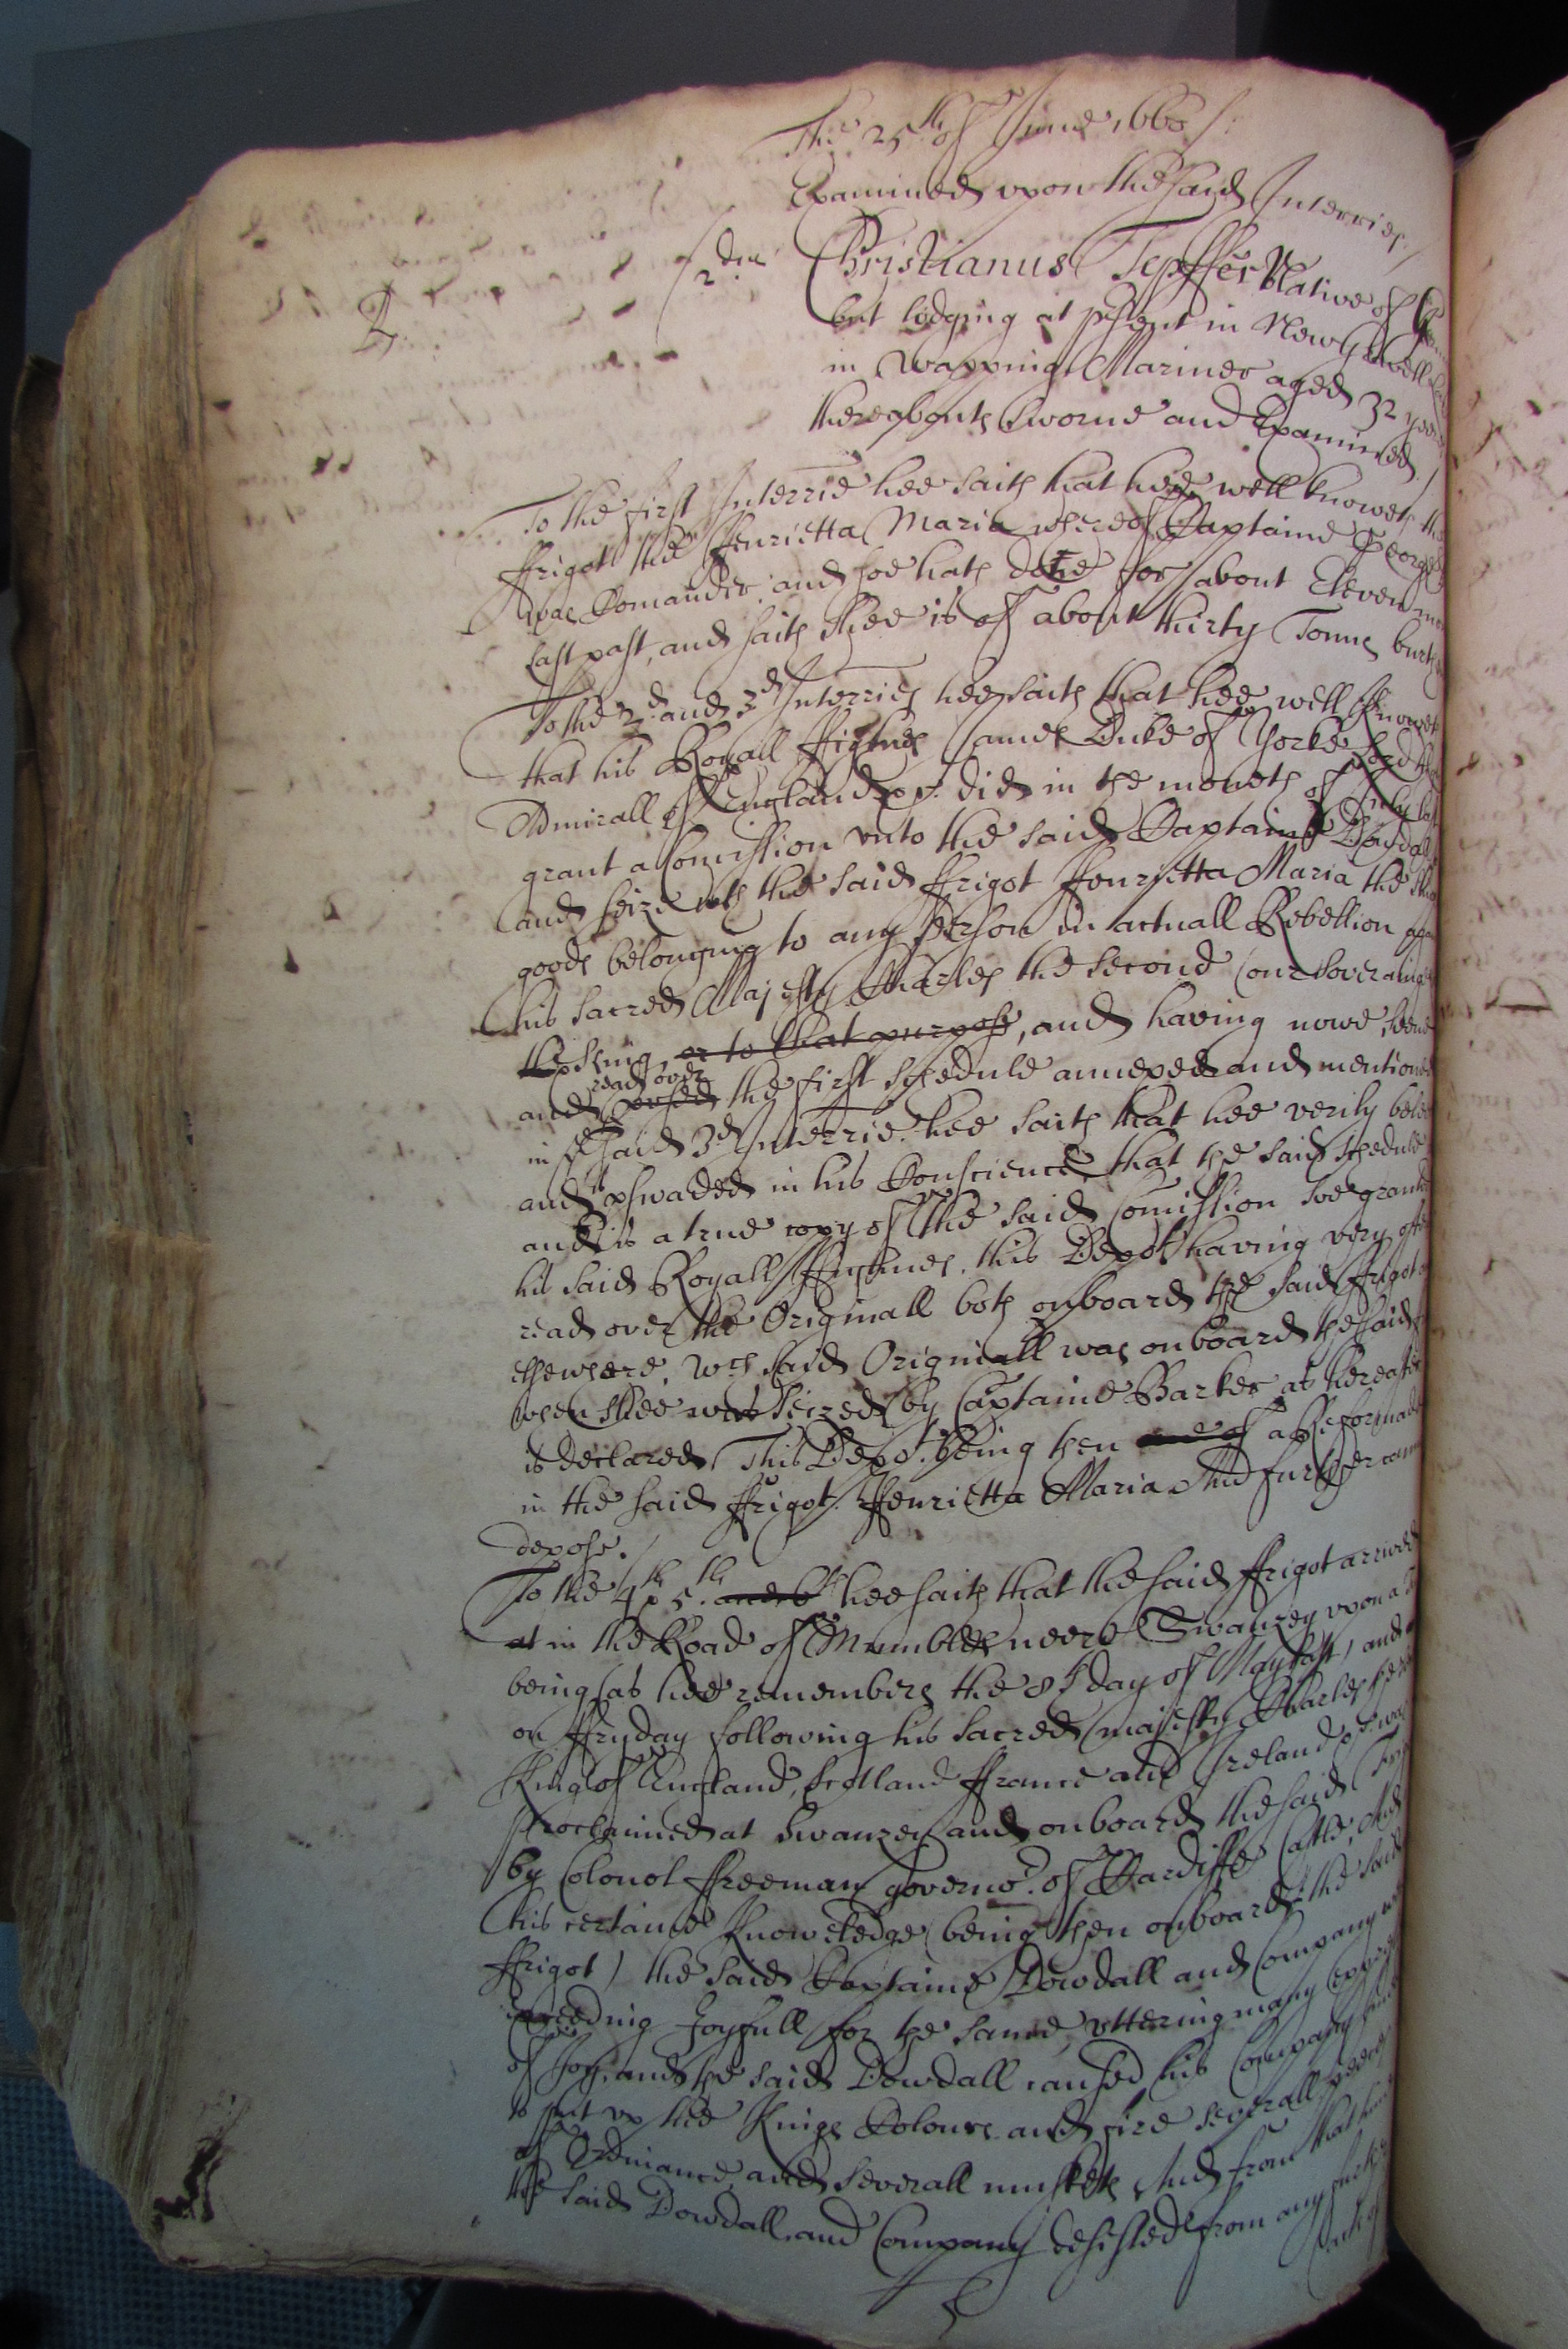 The 25th. of June 1660 /:
Examined upon the said Interries. /
2 dus
Christianus Tepffer Native of
2.
but lodging at pñsent in New Gravell
in Wapping Mariner aged 32 yeeres
thereabouts sworne and Examined /
To the first Interrie hee saith that hee well knoweth the
ffrigot the Henrietta Maria whereof Captaine George
was Comander, and soe hath done for about Eleven
last past, and saith shee is of about thirty Tonns burth
To the 2d. and 3d Interries hee saith that hee well knoweth
that his Royall Highnes James Duke of Yorke Lord
Admirall of England &c. did in the moneth of July last
grant a Comission unto the said Captaine Dowdall
and seize wth the said ffrigot Henrietta Maria the
goods belonging to any person in actuall Rebellion
his sacred Majesty Charles the second (our Soveraigne
the King, or to that purpose, and having nowe seene
read over
and the first schedule annexed and mentioned
in ye said 3d Interrie. hee saith that hee verily
and is pswaded in his Conscience, that the said schedule
and is a true copy of the said Comission soe granted
his said Royall Highnes. this Depot having very often
read over the Originall both onboard the said ffrigot
elsewhere, wch said Originall was onboard the said
when shee was seized by Captaine Barker as hereafter
is declared, This Depot. being then one of a Reformade
in the said ffrigot Henrietta Maria And further
depose. /
To the 4th & 5th. and 6th hee saith that the said ffrigot arrived
at in the Road of Mumbles neere Swanzey upon a
being (as hee remembers the 8th day of May last) and
on ffryday following his sacred majesty Charles the
King of England, Scotland ffrance and Ireland &c. was
proclaimed at Swanzey and onboard the said
by Colonol ffreeman governor. of Cardiffe Castle, And
his certaine knoweledge (being then onboard the said
ffrigot) the said Captaine Dowdall and Company
exceeding Joyfull for the same, uttering many
of Joy, and the said Dowdall caused his Company
to put up the Kings Colours and fire severall peeces
of Ordinance, and severall muskets, And from that time
the said Dowdall and Company desisted from any